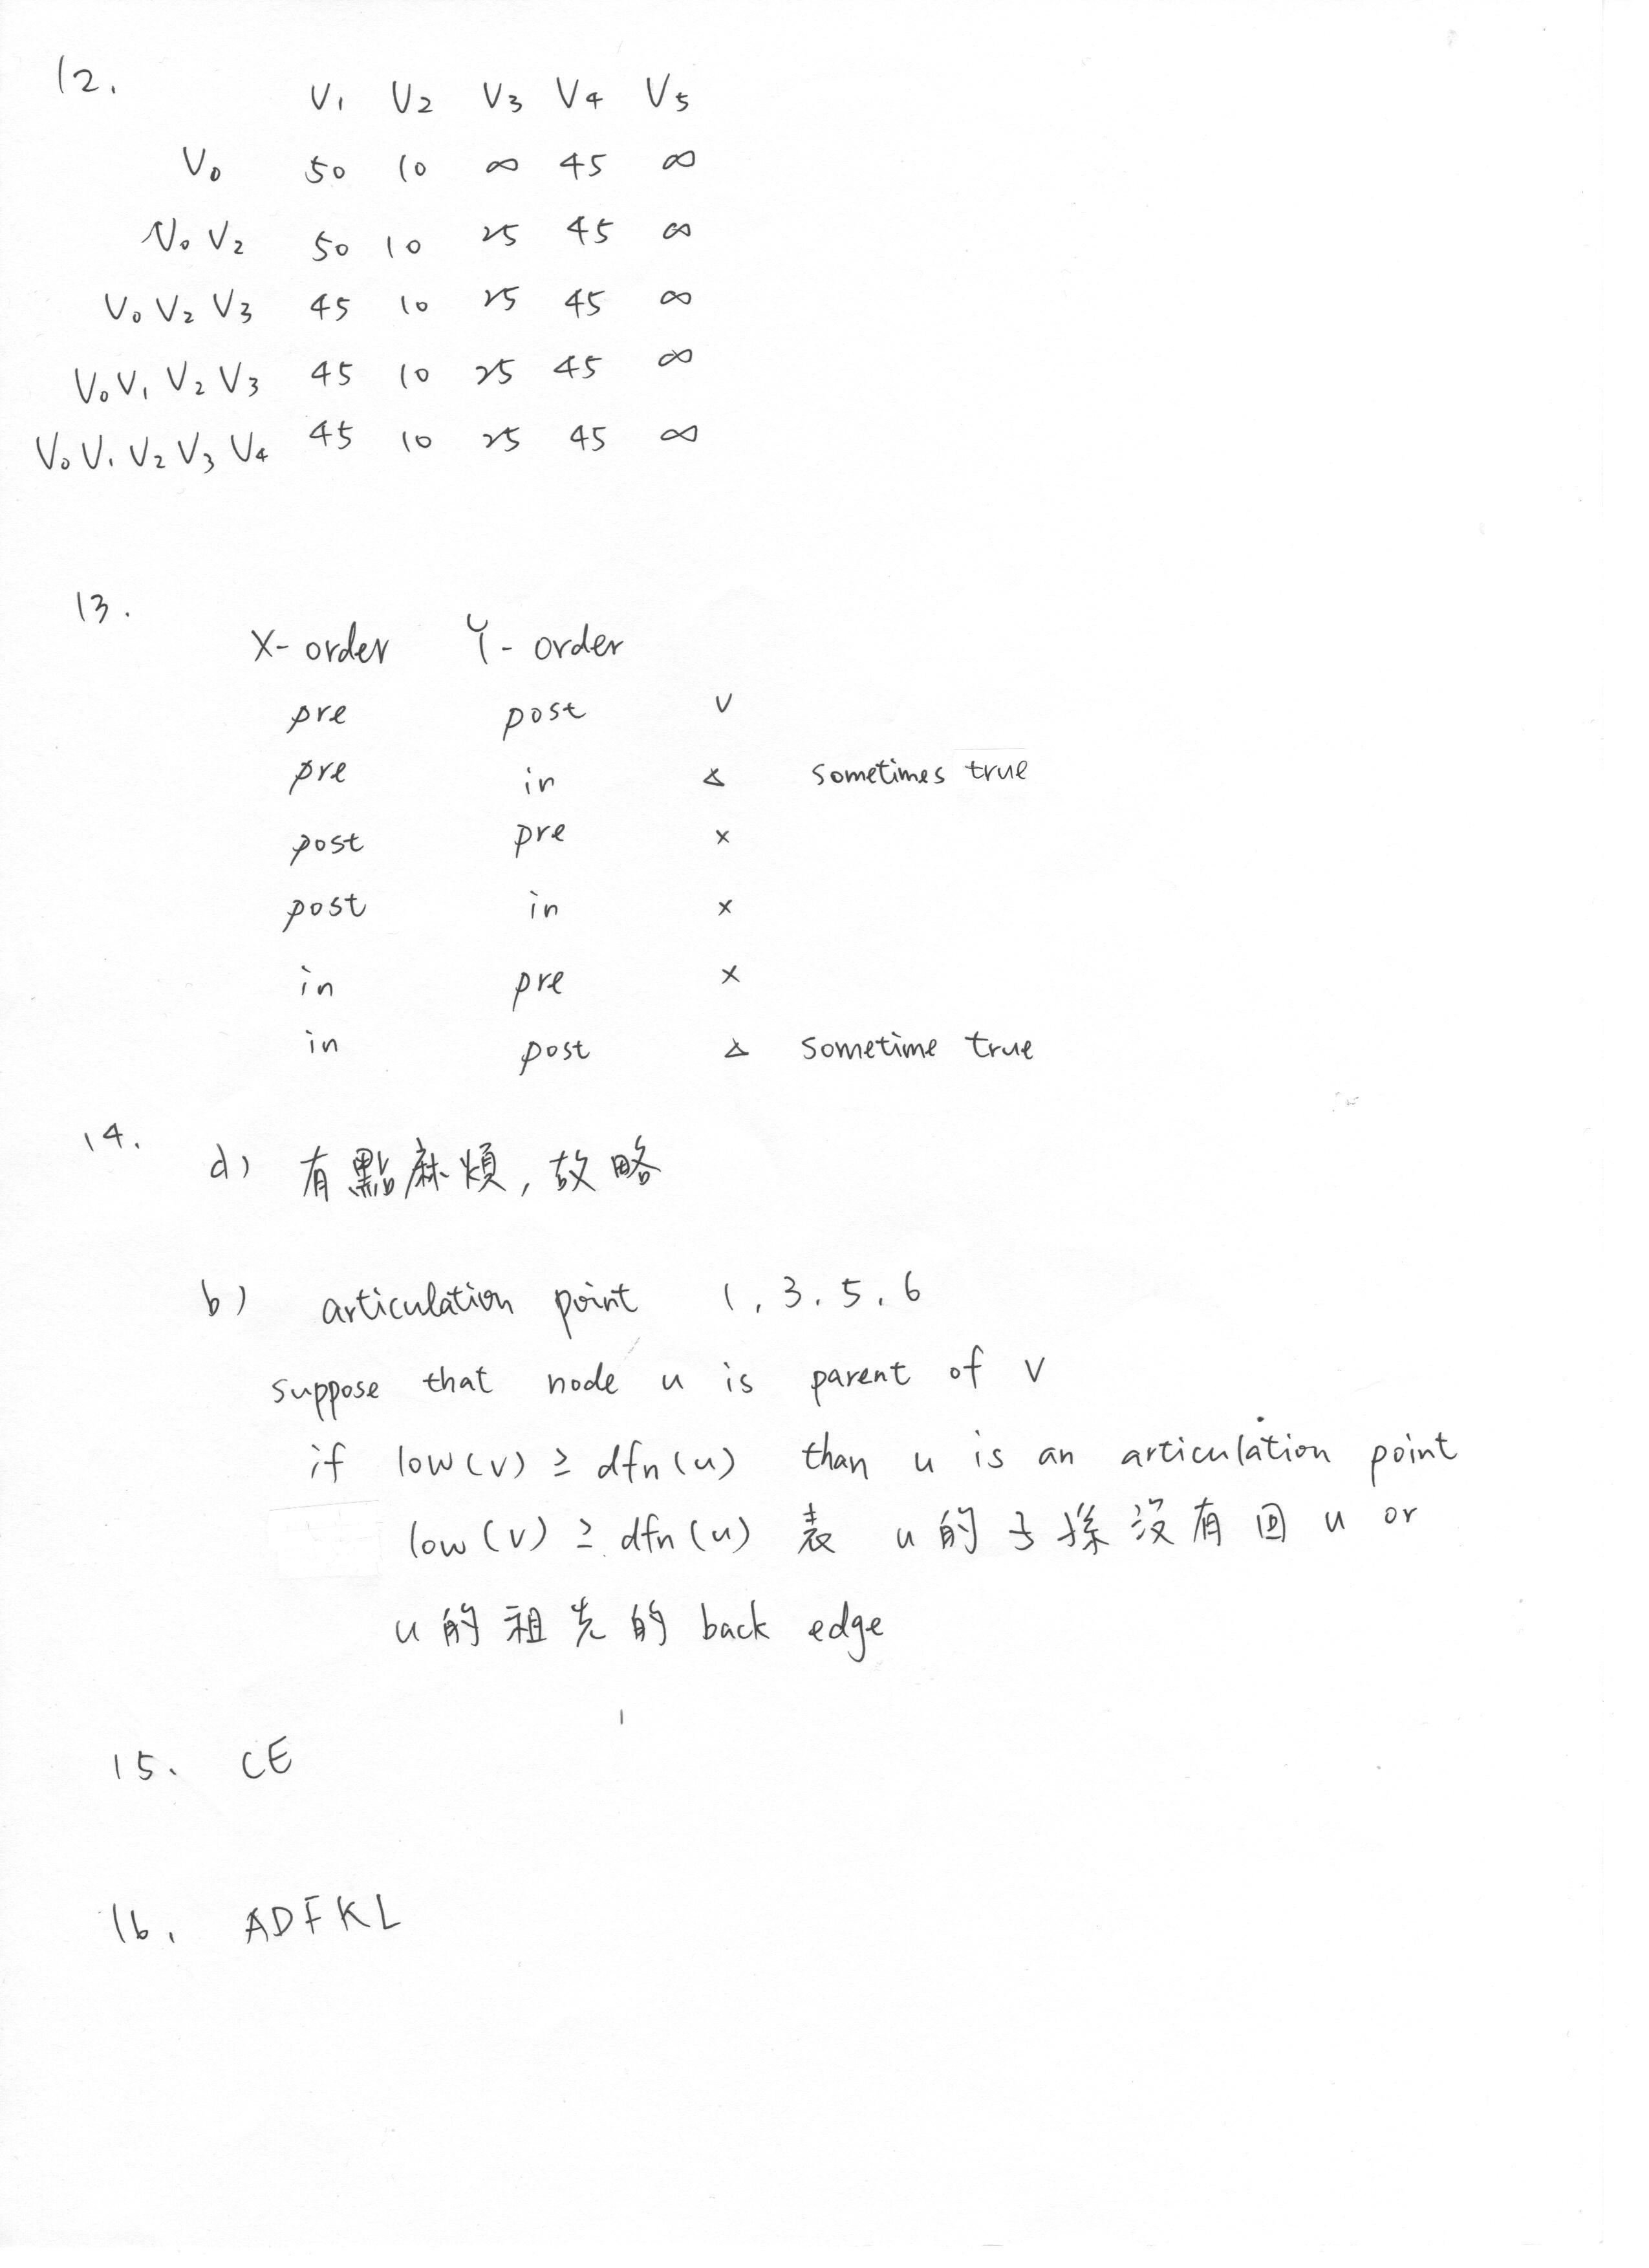 12.
V1 V2 V3 V4 V5
V0 50 10 ∞ 45 ∞
V0 V2 50 10 25 45 ∞
V0 V2 V3 45 10 25 45 ∞
V0 V1 V2 V3 45 10 25 45 ∞
V0 V1 V2 V3 V4 45 10 25 45 ∞
13.
X-order Y-order
pre post v
pre in △ sometimes true
post pre x
post in x
in pre x
in post △ sometime true
14.
a) 有點麻煩, 故略
b) articulation point 1, 3, 5, 6
suppose that node u is parent of v
if low(v) ≥ dfn(u) than u is an articulation point
low(v) ≥ dfn(u) 表 u 的子孫沒有回 u or
u 的祖先的 back edge
15. CE
16. ADFKL